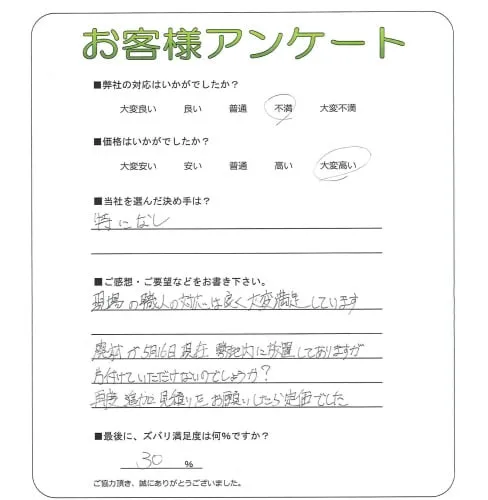 お客様アンケート
■弊社の対応はいかがでしたか?
大変良い 良い 普通 不満 大変不満
■価格はいかがでしたか?
大変安い 安い 普通 高い 大変高い
■当社を選んだ決め手は?
特になし
■ご感想・ご要望などをお書き下さい。
現場の職人の対応は良く大変満足しています
廃材が5月16日現在 敷地内に放置しておりますが
片付けていただけないのでしょうか?
再度追加で見積りをお願いしたら定価でした
■最後に、ズバリ満足度は何%ですか?
30 %
ご協力頂き、誠にありがとうございました。